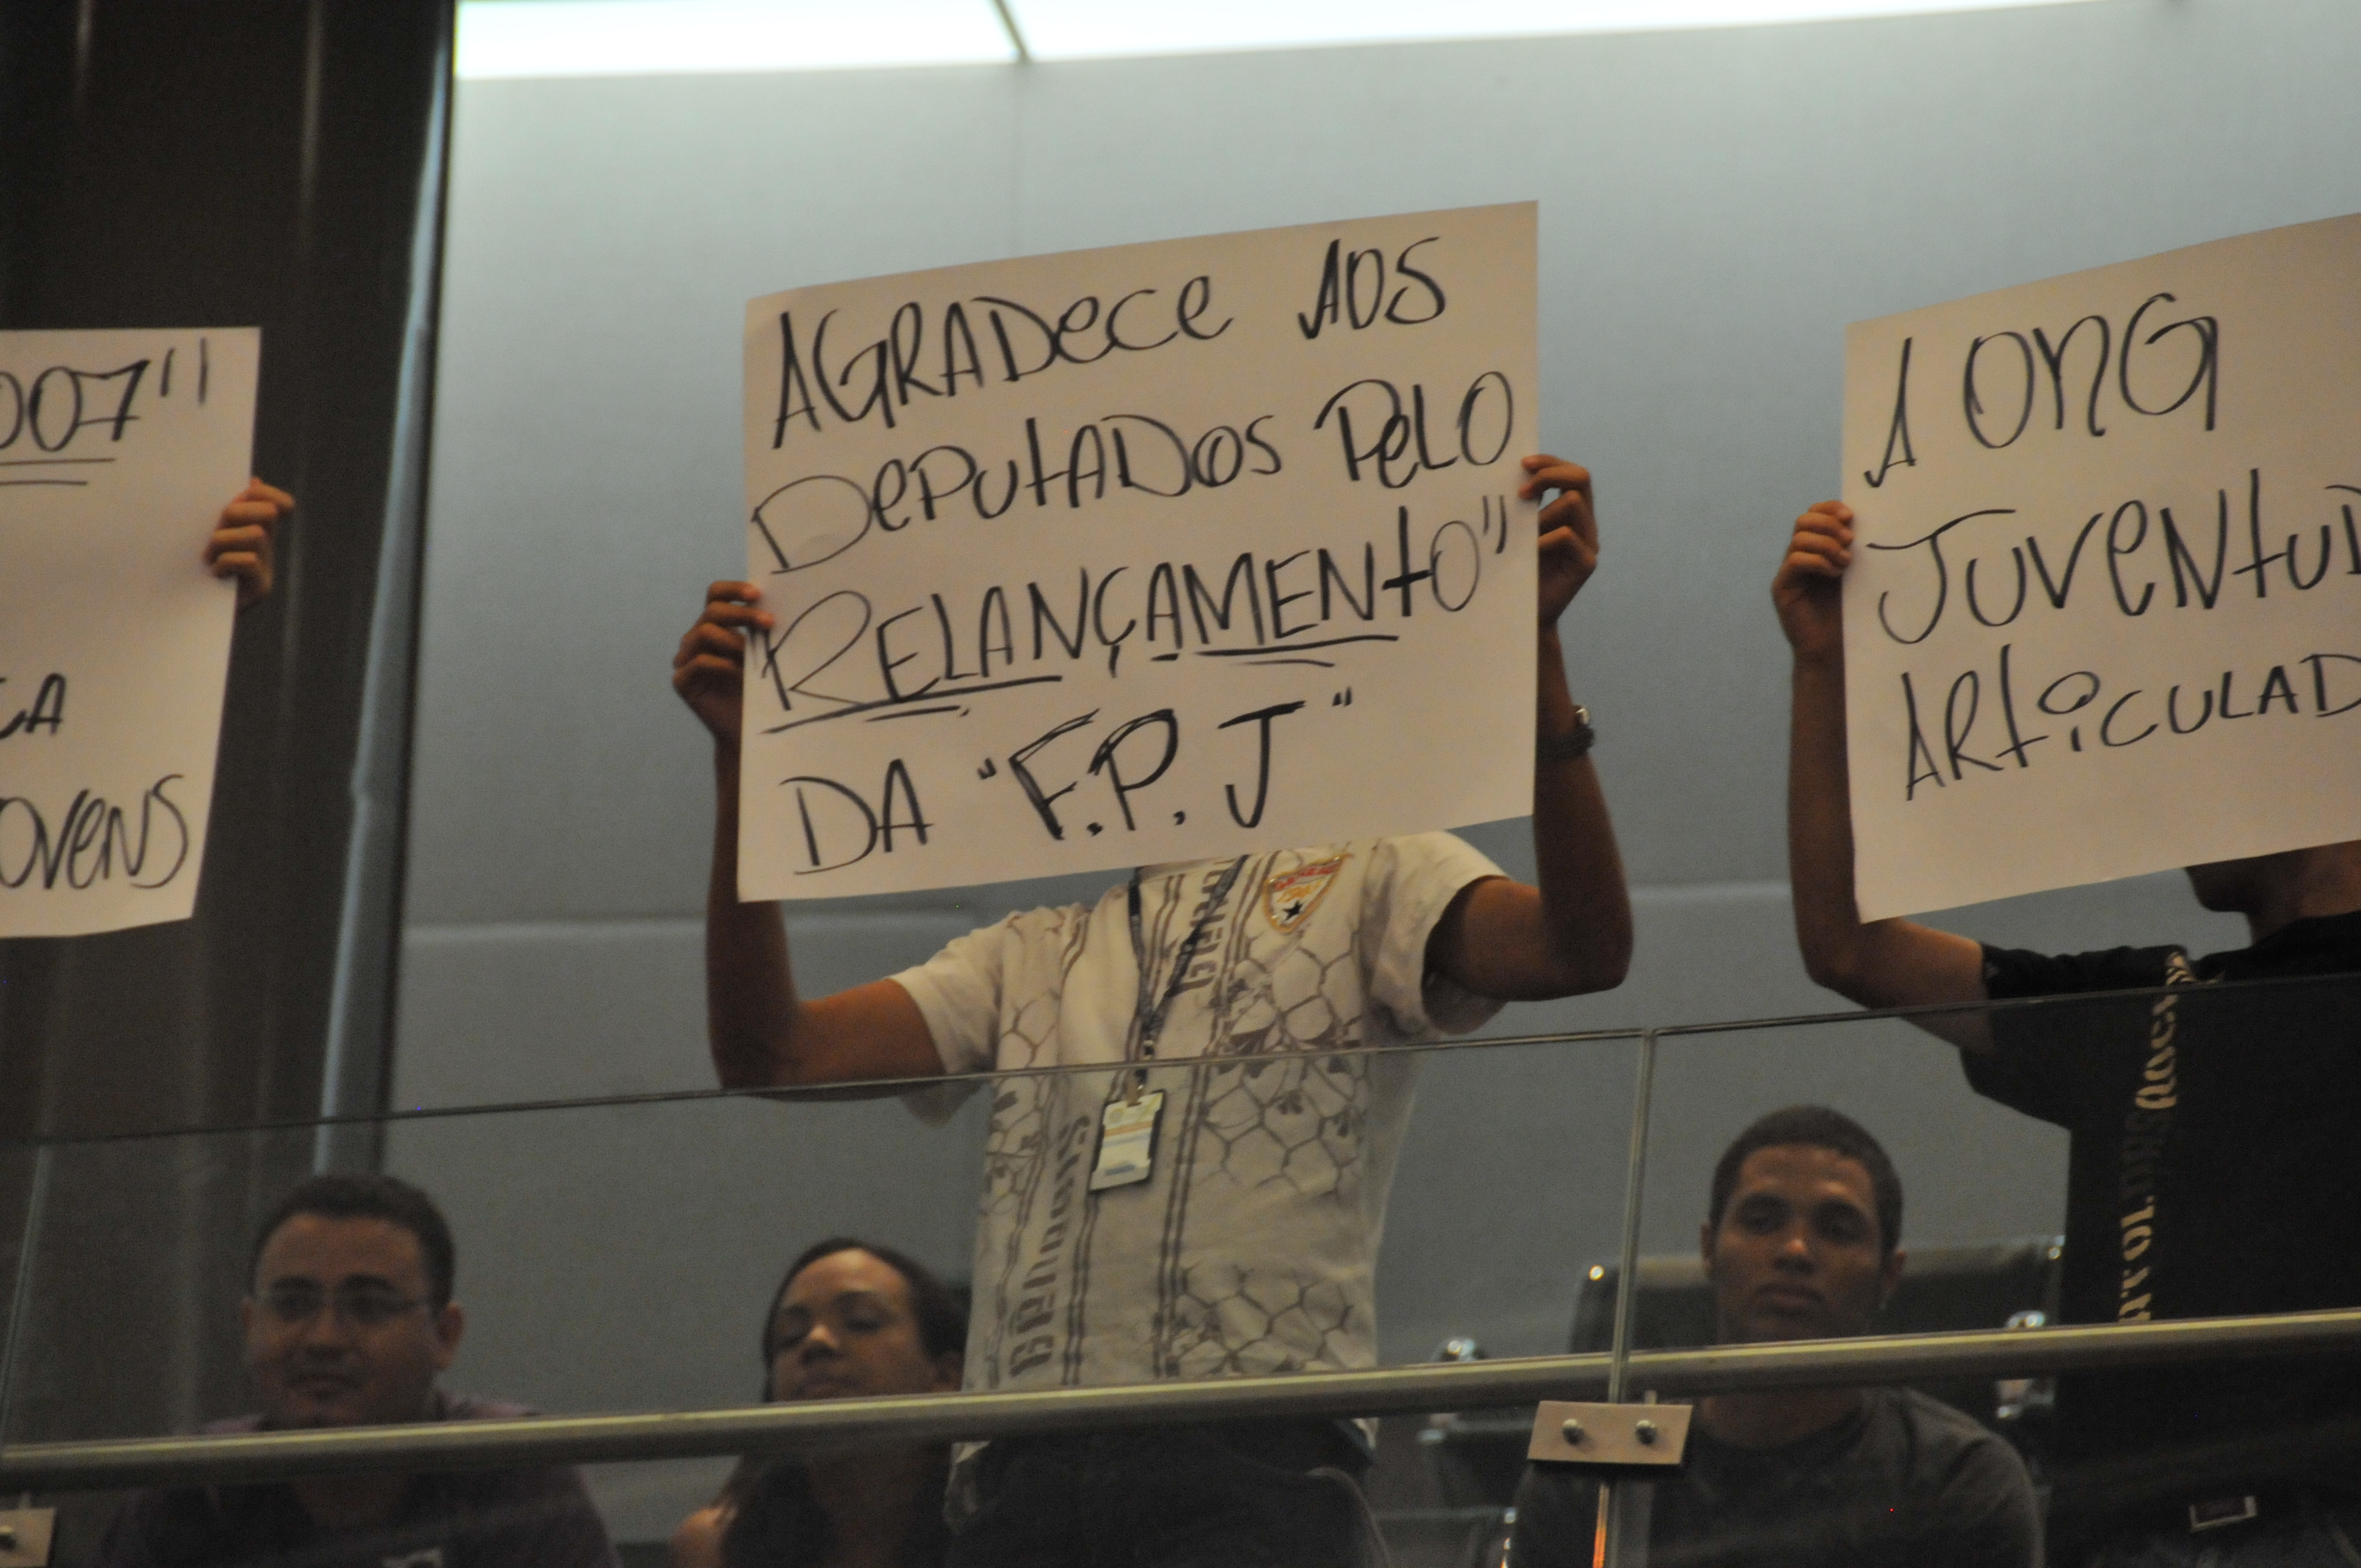 007"
CA
OVENS
AGRADeCe AOS
DePUtADOS PeLO
RELANÇAMENtO"
DA "F.P.J"
A ONG
JUVeNtUD
ARtiCULAD